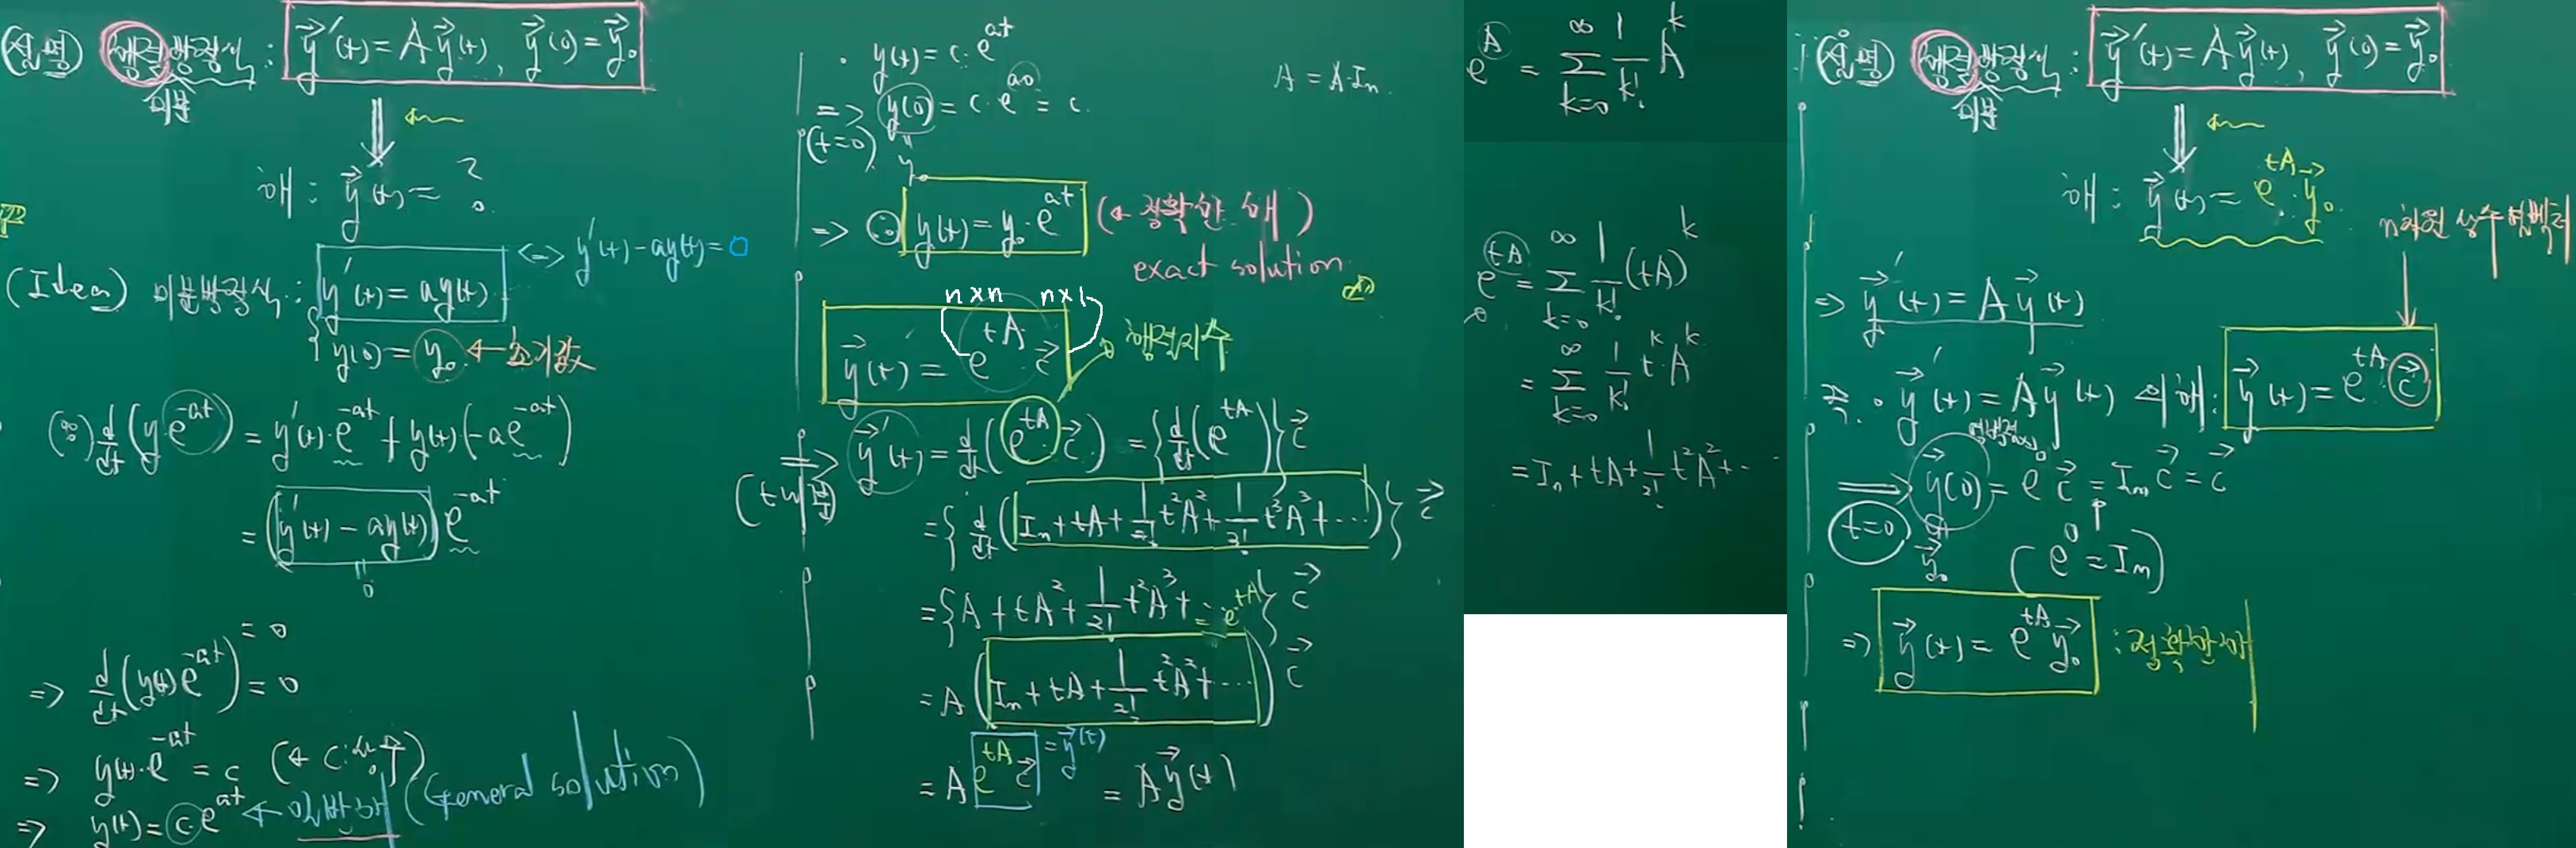 (설명) 행렬방정식 : y⃗′(t) = A y⃗(t), y⃗(0) = y⃗₀
미분
해 : y⃗(t) = ?
(Idea) 미분방정식 : y′(t) = ay(t) <=> y′(t) - ay(t) = 0
y(0) = y₀ ← 초기값
(∵) d/dt (y e^{-at}) = y′(t)·e^{-at} + y(t)(-a e^{-at})
= (y′(t) - ay(t)) e^{-at}
"
0
= 0
=> d/dt (y(t) e^{-at}) = 0
=> y(t)·e^{-at} = c (← c: 상수)
=> y(t) = c·e^{at} ← 일반해 (General solution)
· y(t) = c·e^{at}
=> y(0) = c·e^{a0} = c.
(t=0)
"
y₀
A = A·Iₙ.
=> ∴ y(t) = y₀·e^{at} (← 정확한 해)
exact solution
n×n n×1
y⃗(t) = e^{tA} c⃗ 행렬지수
=> y⃗′(t) = d/dt (e^{tA}·c⃗) = {d/dt (e^{tA})} c⃗
(t미분)
= {d/dt (Iₙ + tA + 1/2! t²A² + 1/3! t³A³ + ⋯)} c⃗
= {A + tA² + 1/2! t²A³ + ⋯} c⃗
= e^{tA}
= A (Iₙ + tA + 1/2! t²A² + ⋯) c⃗
= A e^{tA} c⃗ = y⃗(t) = A y⃗(t)
e^A = ∑_{k=0}^{∞} 1/k! A^k
e^{tA} = ∑_{k=0}^{∞} 1/k! (tA)^k
= ∑_{k=0}^{∞} 1/k! t^k·A^k
= Iₙ + tA + 1/2! t²A² + ⋯
(설명) 행렬방정식 : y⃗′(t) = A y⃗(t), y⃗(0) = y⃗₀
미분
해 : y⃗(t) = e^{tA}·y⃗₀
n차원 상수벡터
=> y⃗′(t) = A y⃗(t)
· y⃗′(t) = A y⃗(t) 의 해 : y⃗(t) = e^{tA}·c⃗
=> y⃗(0) = e⁰ c⃗ = Iₙ c⃗ = c⃗
t=0
"
y⃗₀
(e⁰ = Iₙ)
=> y⃗(t) = e^{tA} y⃗₀ : 정확한 해